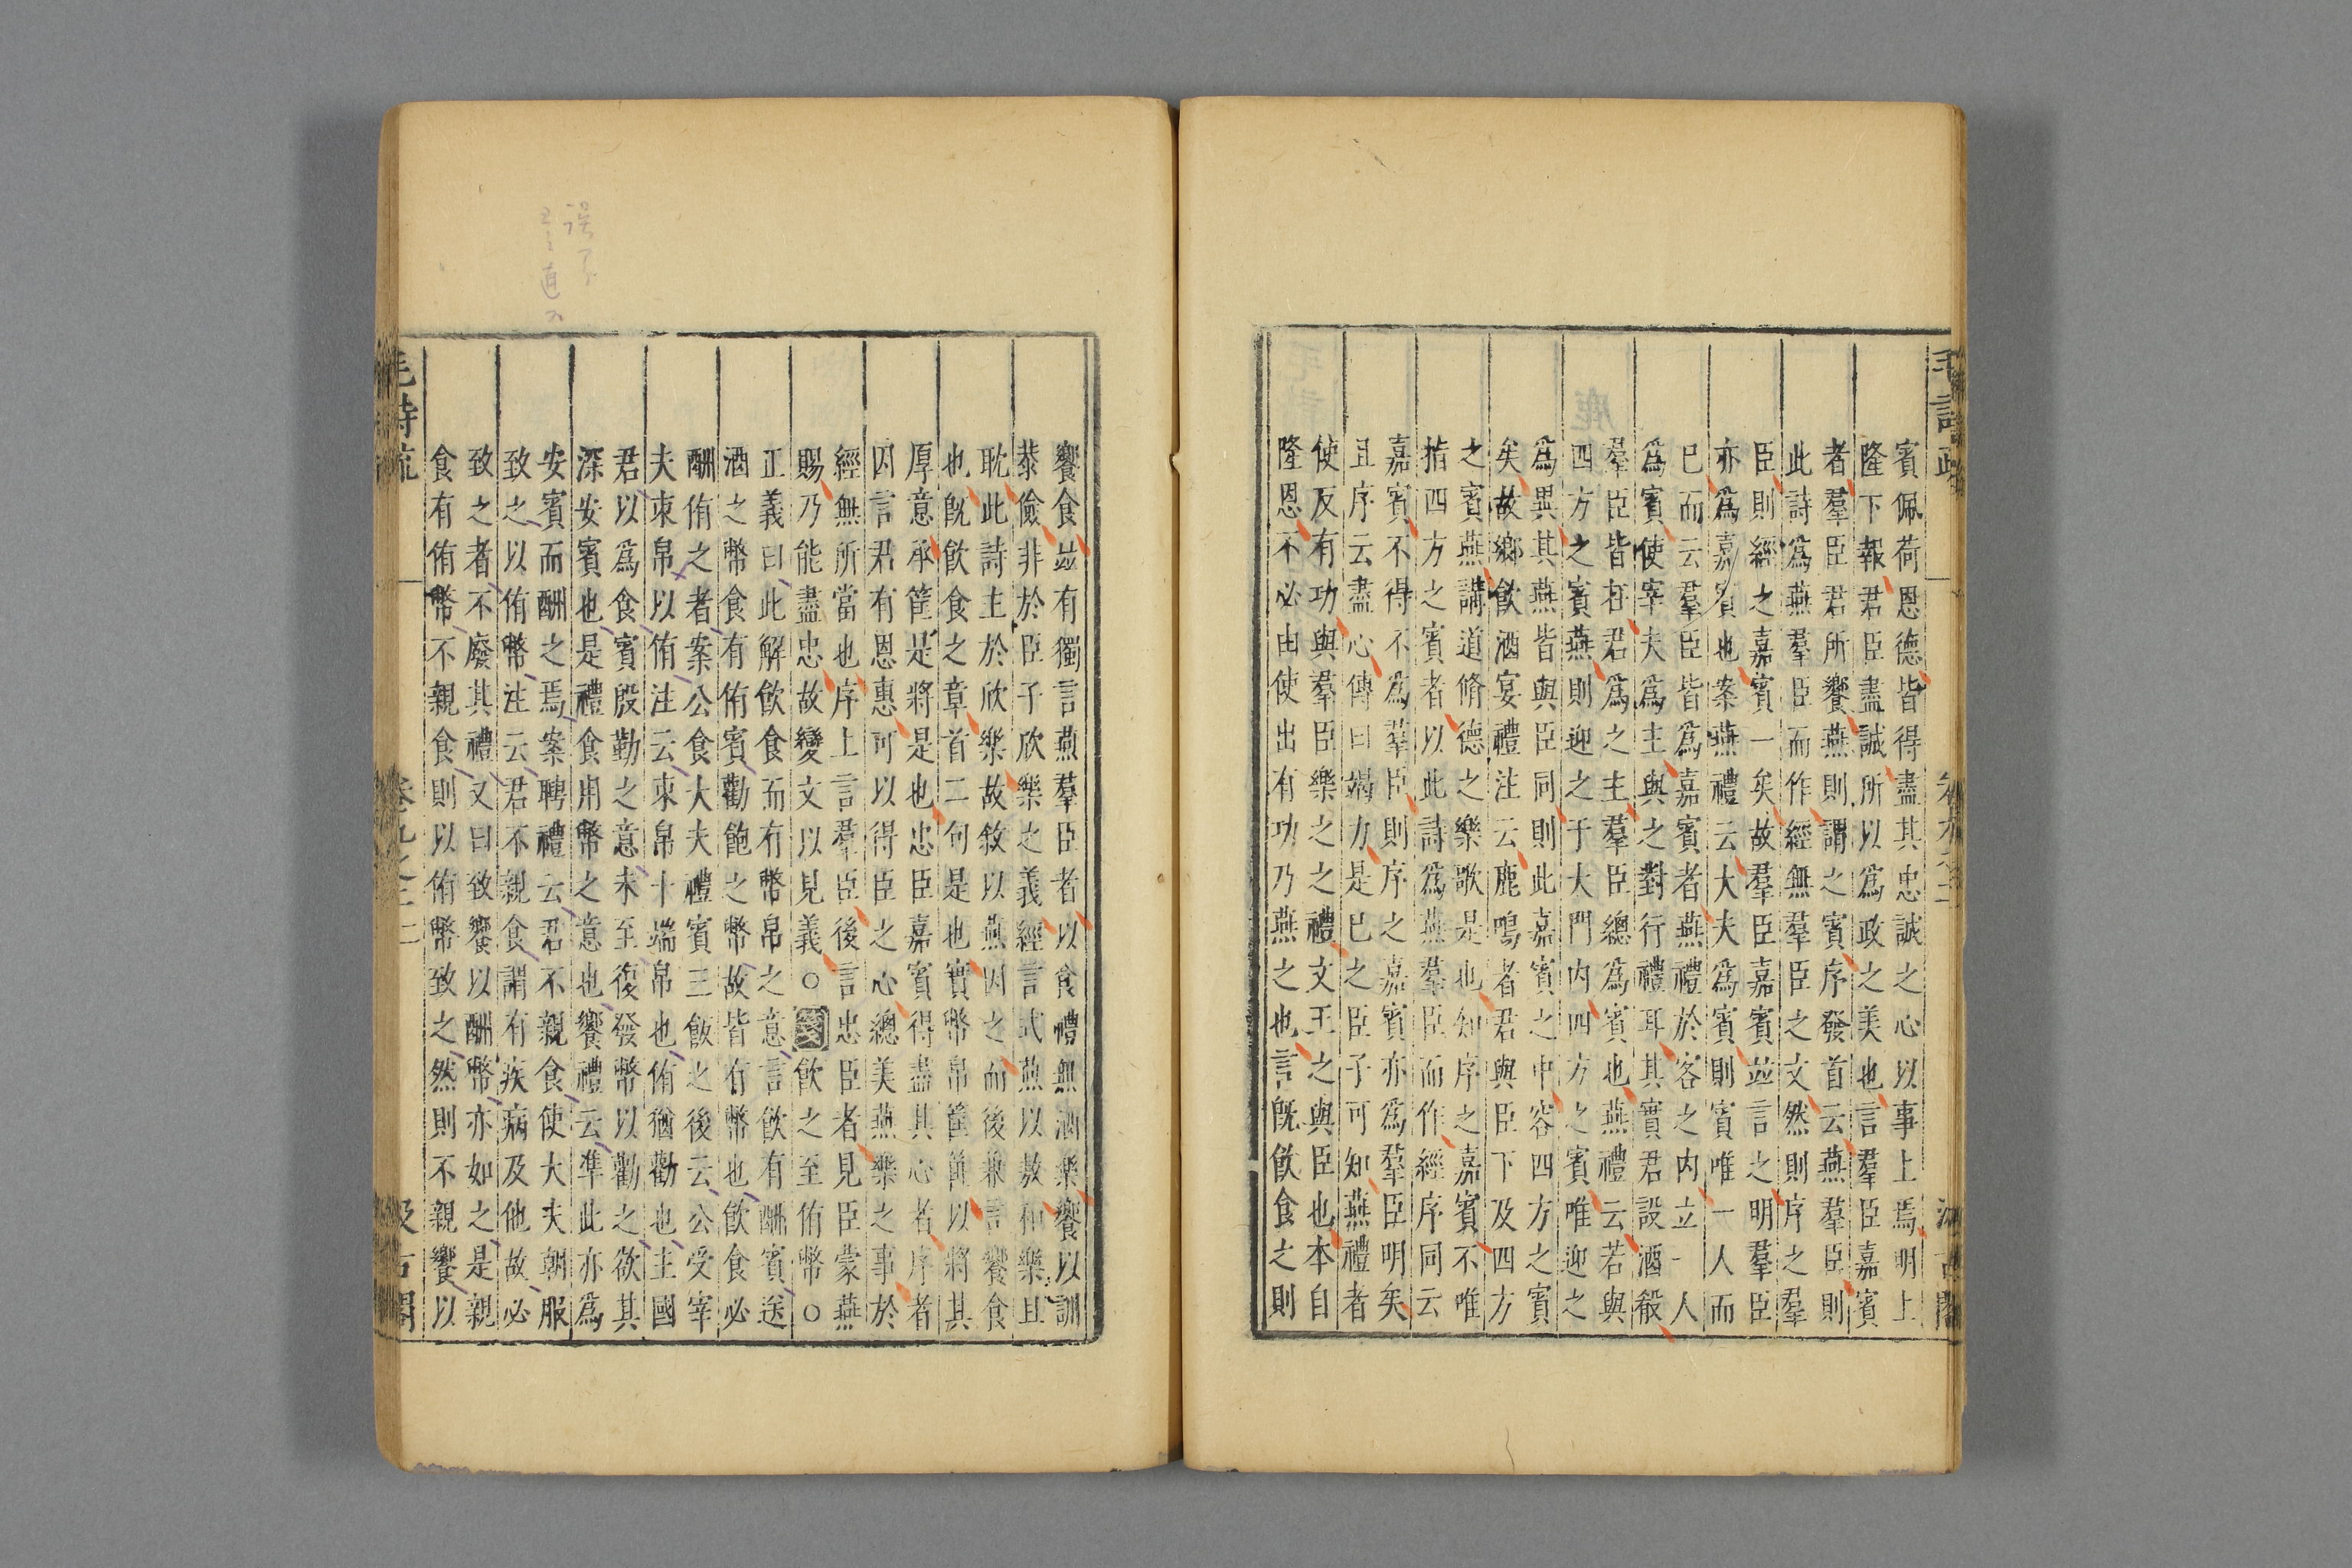 賓佩荷恩德皆得盡其忠誠之心以事上焉明上
隆下報君臣盡誠所以爲政之美也言羣臣嘉賓
者羣臣君所饗燕則謂之賓序發首云燕羣臣則
此詩爲燕羣臣而作經無羣臣之文然則序之羣
臣則經之嘉賓一矣故羣臣嘉賓並言之明羣臣
亦爲嘉賓也案燕禮云大夫爲賓則賓唯一人而
已而云羣臣皆爲嘉賓者燕禮於客之内立一人
爲賓使宰夫爲主與之對行禮耳其實君設酒殽
羣臣皆在君爲之主羣臣總爲賓也燕禮云若與
四方之賓燕則迎之于大門内四方之賓唯迎之
爲異其燕皆與臣同則此嘉賓之中容四方之賓
矣故鄉飲酒宴禮注云鹿鳴者君與臣下及四方
之賓燕講道脩德之樂歌是也知序之嘉賓不唯
指四方之賓者以此詩爲燕羣臣而作經序同云
嘉賓不得不爲羣臣則序之嘉賓亦爲羣臣明矣
且序云盡心傳曰竭力是已之臣子可知燕禮者
使反有功與羣臣樂之之禮文王之與臣也本自
隆恩不必由使出有功乃燕之也言旣飲食之則
饗食並有獨言燕羣臣者以食禮無酒樂饗以訓
恭儉非於臣子欣樂之義經言式燕以敖和樂且
耽此詩主於欣樂故敘以燕因之而後兼言饗食
也旣飲食之章首二句是也實幣帛筐篚以將其
厚意承筐是將是也忠臣嘉賓得盡其心者序者
因言君有恩惠可以得臣之心總美燕樂之事於
經無所當也序上言羣臣後言忠臣者見臣蒙燕
賜乃能盡忠故變文以見義○箋飲之至侑幣○
正義曰此解飲食而有幣帛之意言飲有酬賓送
酒之幣食有侑賓勸飽之幣故皆有幣也飲食必
酬侑之者案公食大夫禮賓三飯之後云公受宰
夫束帛以侑注云束帛十端帛也侑猶勸也主國
君以爲食賓殷勤之意未至復發幣以勸之欲其
深安賓也是禮食用幣之意也饗禮云準此亦爲
安賓而酬之焉案聘禮云君不親食使大夫朝服
致之以侑幣注云君不親食謂有疾病及他故必
致之者不廢其禮又曰致饗以酬幣亦如之是親
食有侑幣不親食則以侑幣致之然則不親饗以
毛詩疏
汲古閣